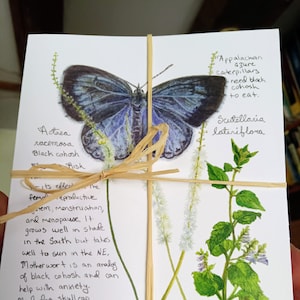 Appalachian
azure
caterpillars
need black
cohosh
to eat.
Scutellaria
lateriflora
Actaea
racemosa
Black cohosh
its effe
the female reproductive
system, menstruation,
and menopause. It
grows well in shade
in the South but takes
well to sun in the NE.
Motherwort is an analog
of black cohosh and can
help with anxiety.
skullcap